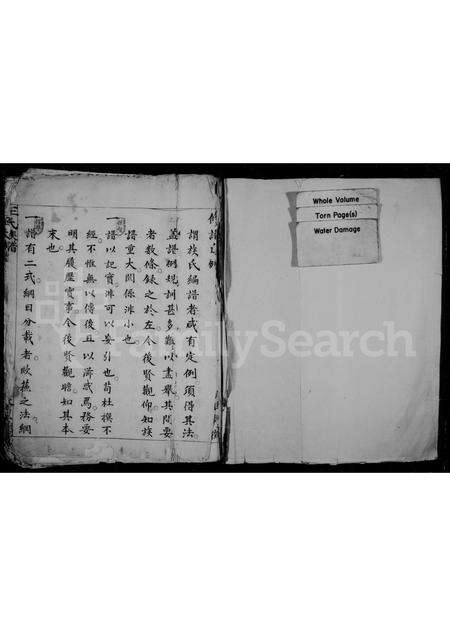 修譜
謂族氏編譜者咸有定例須得其法
蓋譜例規詞甚多難以盡舉其間要
者數條錄之於左令後賢觀仰如族
譜重大關係非小也
一譜以記實非可以妄引也苟杜撰不
經不惟無以傳後且以滋惑焉務要
明其履歷實事令後賢觀瞻如其本
來也
一譜有二式綱目分載者歐蘇之法綱
王氏
Whole Volume
Torn Page(s)
Water Damage
FamilySearch